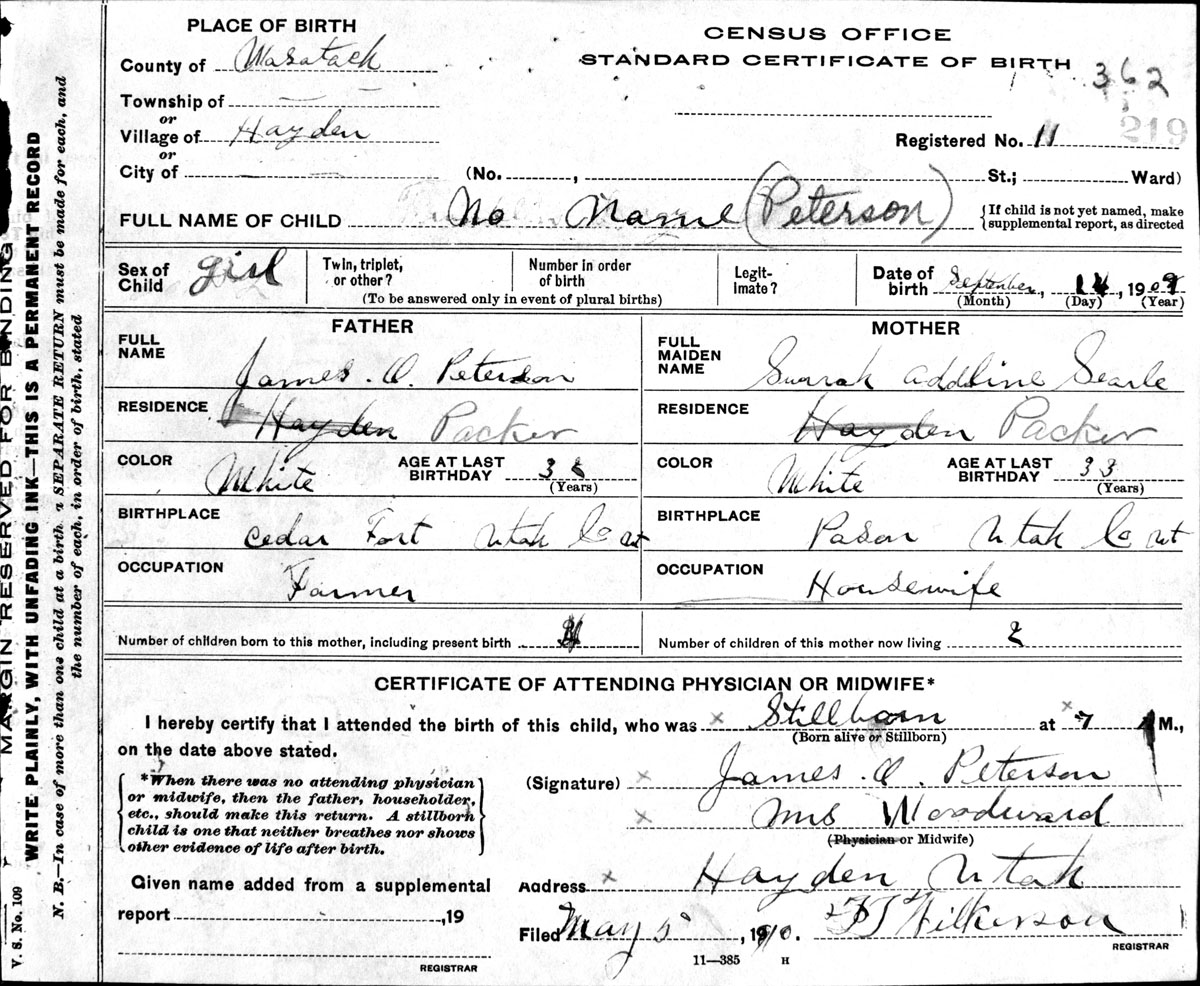 PLACE OF BIRTH
CENSUS OFFICE
STANDARD CERTIFICATE OF BIRTH
362
219
County of Wasatach
Township of
or
Village of Hayden
or
City of
Registered No. 11
(No. , St.; Ward)
FULL NAME OF CHILD No Name (Peterson)
{If child is not yet named, make
supplemental report, as directed
Sex of Child girl
Twin, triplet, or other?
Number in order of birth
(To be answered only in event of plural births)
Legit- imate?
Date of birth September, 14, 1909
(Month) (Day) (Year)
FATHER
FULL NAME James . O. Peterson
RESIDENCE Hayden Packer
COLOR White
AGE AT LAST BIRTHDAY 38
(Years)
BIRTHPLACE Cedar Fort Utah Co Ut
OCCUPATION Farmer
MOTHER
FULL MAIDEN NAME Surrah Addline Searle
RESIDENCE Hayden Packer
COLOR White
AGE AT LAST BIRTHDAY 33
(Years)
BIRTHPLACE Pason Utah Co Ut
OCCUPATION Housewife
Number of children born to this mother, including present birth
Number of children of this mother now living 2
CERTIFICATE OF ATTENDING PHYSICIAN OR MIDWIFE*
I hereby certify that I attended the birth of this child, who was x Stillborn at x 7 M.,
(Born alive or Stillborn)
on the date above stated.
*When there was no attending physician
or midwife, then the father, householder,
etc., should make this return. A stillborn
child is one that neither breathes nor shows
other evidence of life after birth.
(Signature) x James . O. Peterson
x Mrs Woodward
(Physician or Midwife)
Given name added from a supplemental
report , 19
REGISTRAR
Address x Hayden Utah
Filed May 5, 1910. FJ Wilkerson
REGISTRAR
11—385 H
MARGIN RESERVED FOR BINDING
WRITE PLAINLY, WITH UNFADING INK—THIS IS A PERMANENT RECORD
N. B.—In case of more than one child at a birth a SEPARATE RETURN must be made for each, and
the number of each, in order of birth, stated
V. S. No. 109